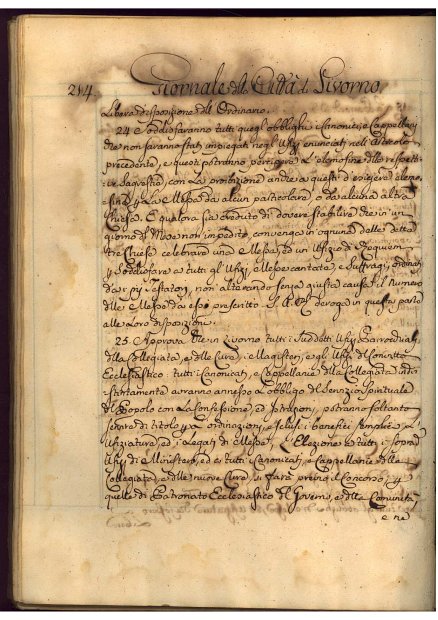 214 Giornale della Città di Livorno
Libera disposizione dell Ordinario.
24 Soddisfaranno tutti quegl'obblighi i Canonici, e Cappellani
che non saranno stati impiegati negl'Ufizj enunciati nell'Articolo
precedente, e questi potranno percipere l'elemosine dalle respetti-
ve Sagrestie con la proibizione anche a questi d'esigere elemo-
sine la Messa da alcun particolare, o da alcuna altra
Chiesa. E qualora sia creduto di dovere stabilire che in un
giorno di Mese non impedito, convenga in ognuna delle dette
tre Chiese celebrare una Messa, ed un Ufizio di Requiem
Soddisfare a tutti gli Ufizj, Messe cantate, e Suffragj ordinati
da Testatori, non alterando senza giusta causa il numero
delle Messe da essi prescritto S. A. R. deroga in questa parte
alle loro disposizioni.
25. Approva che in Livorno tutti i suddetti Ufizj Parrocchiali
della Collegiata, e delle Cure, i Magisteri, e gl'Ufizj di Ministero
Ecclesiastico: tutti i Canonicati, e Cappellanie della Collegiata indi-
stintamente avranno annesso l'obbligo del Servizio Spirituale
del Popolo con la Confessione, ed i Patroni, potranno soltanto
servire di titolo le Ordinazioni, esclusi i benefici semplici, l'
Ufiziature, ed i Legati di Messe. L'Elezione a tutti i sopra
Ufizj di Ministero, ed a tutti i Canonicati, e Cappellanie della
Collegiata, e delle nuove Cure, si farà previo il Concorso;
quelle di Patronato Ecclesiastico del Governo, e della Comunità
e ne